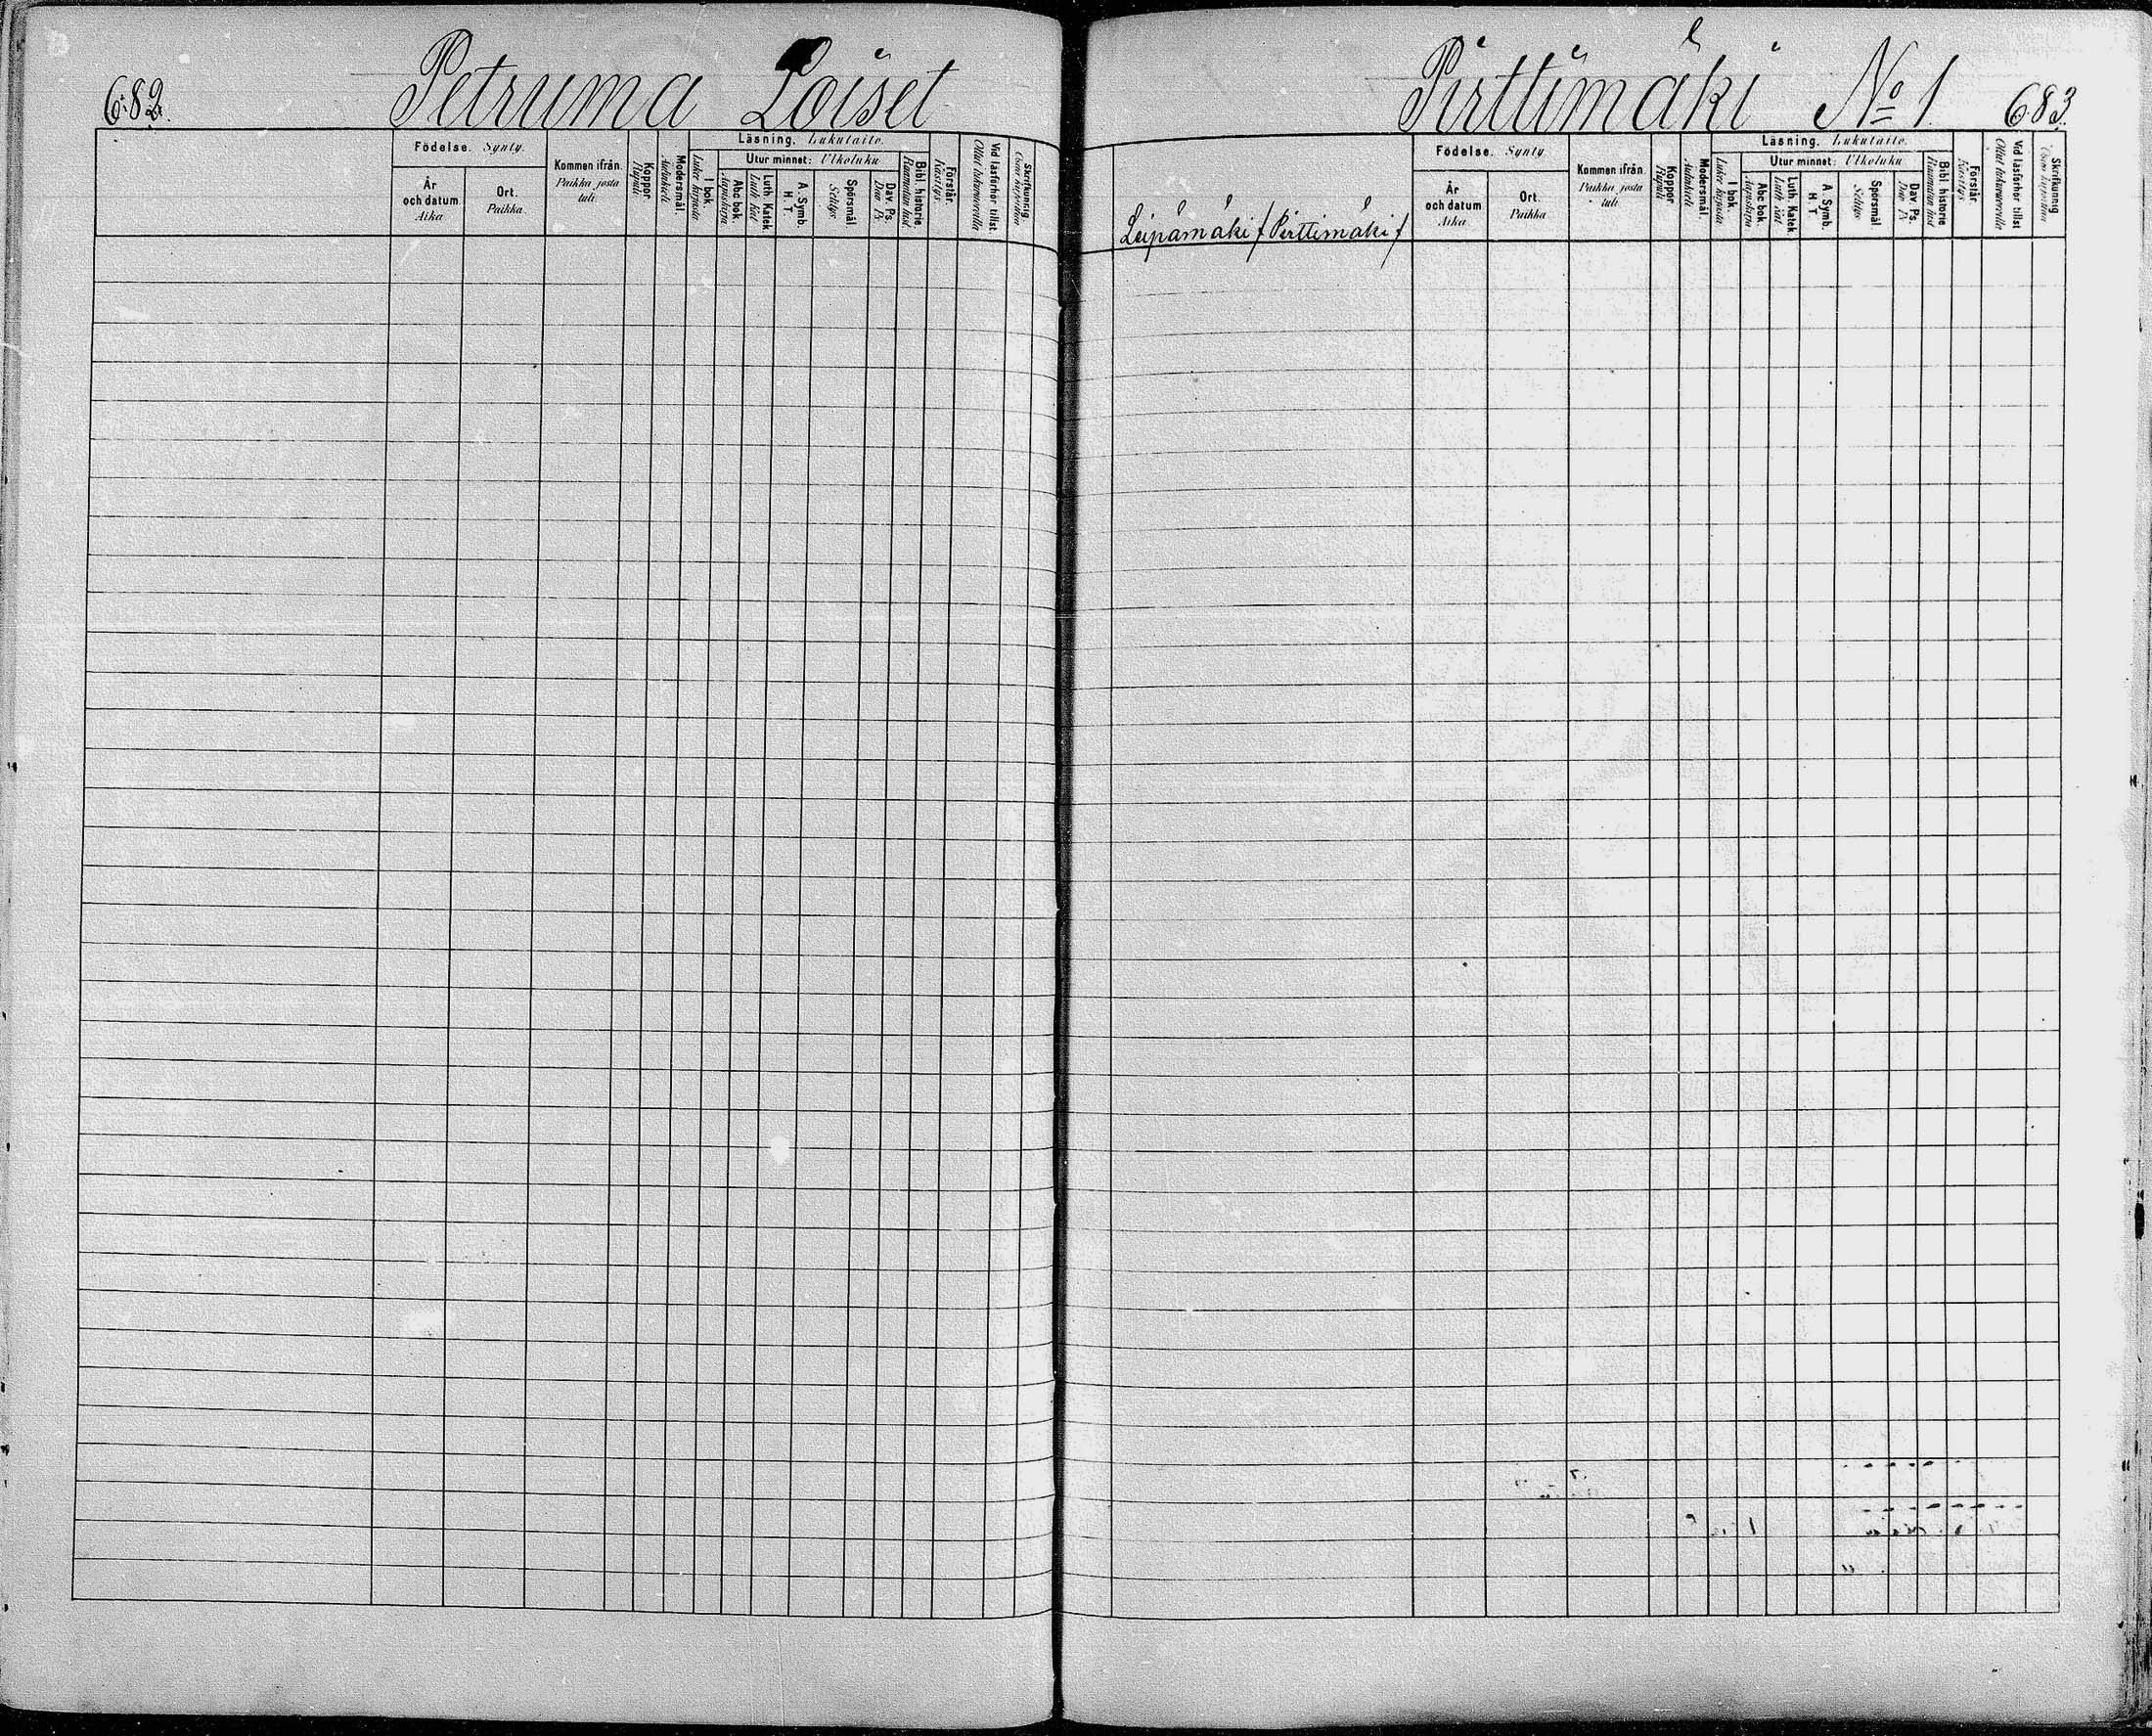 682.
Petruma Loiset
Födelse. Synty.
År och datum. Aika
Ort. Paikka.
Kommen ifrån. Paikka josta tuli.
Koppor. Rupuli
Modersmål. Äidinkieli
Läsning. Lukutaito.
I bok. Lukee kirjasta
Utur minnet: Ulkoluku
Abc bok. Aapiskirja
Luth Katek Luth Kat
A. Symb. H. T.
Spörsmål Selitys
Dav. Ps. Dav. Ps
Bibl. historie.
Förstår. Käsitys.
Vid läsförhör tillst.
Skrifkunnig.
Pirttimäki No 1.
683.
Leipämäki / Pirttimäki /
Födelse. Synty
År och datum Aika.
Ort. Paikka
Kommen ifrån. Paikka josta tuli.
Koppor Rupuli
Modersmål Äidinkieli
Läsning. Lukutaito.
I bok. Lukee kirjasta
Utur minnet: Ulkoluku
Abc bok. Aapiskirja
Luth. Katek. Luth Kat
A. Symb. H T
Spörsmål. Selitys
Dav. Ps. Dav. Ps
Bibl. historie
Förstår. Käsitys.
Vid läsförhör tillst
Skrifkunnig